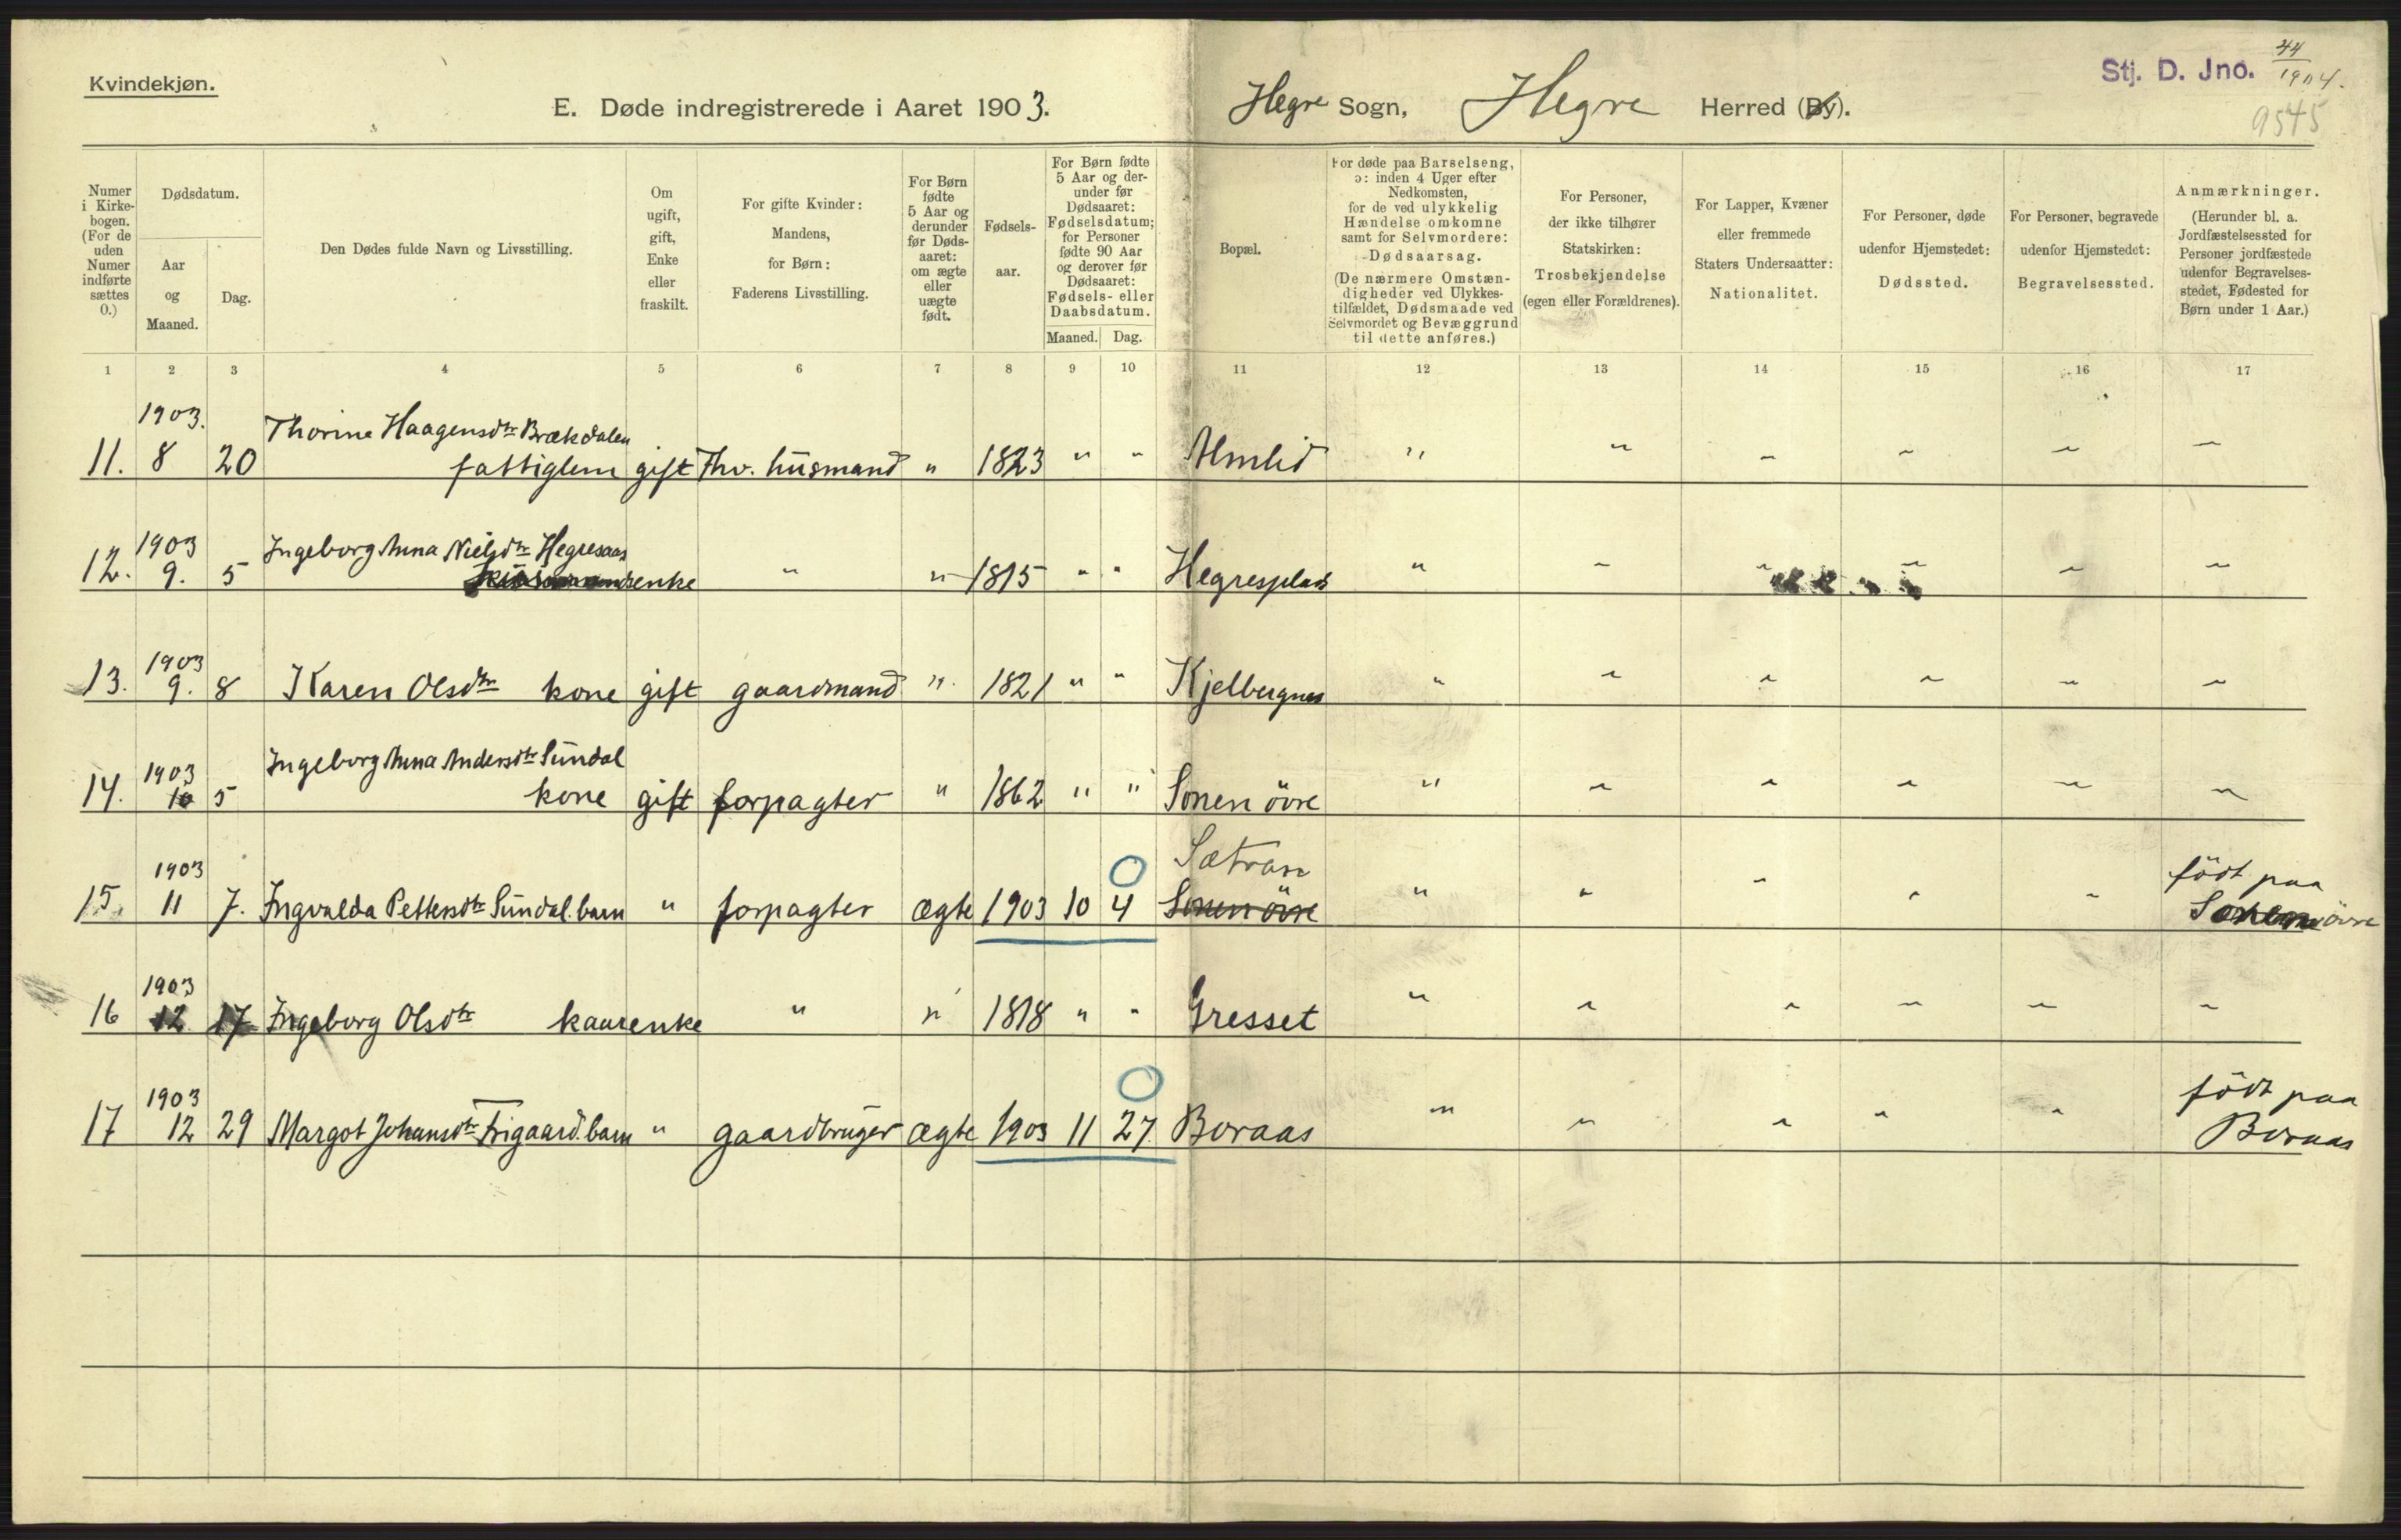 Kvindekjøn.
Stj. D. Jno. 44/1904.
9545
E. Døde indregistrerede i Aaret 1903. Hegre Sogn, Hegre Herred (By).
Numer i Kirkebogen. (For de uden Numer indførte sættes 0.)
Dødsdatum.
Aar og Maaned.
Dag.
Den Dødes fulde Navn og Livsstilling.
Om ugift, gift, Enke eller fraskilt.
For gifte Kvinder: Mandens, for Børn: Faderens Livsstilling.
For Børn fødte 5 Aar og derunder før Dødsaaret: om ægte eller uægte født.
Fødselsaar.
For Børn fødte 5 Aar og derunder før Dødsaaret: Fødselsdatum; for Personer fødte 90 Aar og derover før Dødsaaret: Fødsels- eller Daabsdatum.
Maaned. Dag.
Bopæl.
For døde paa Barselseng, ɔ: inden 4 Uger efter Nedkomsten, for de ved ulykkelig Hændelse omkomne samt for Selvmordere: Dødsaarsag. (De nærmere Omstændigheder ved Ulykkestilfældet, Dødsmaade ved Selvmordet og Bevæggrund til dette anføres.)
For Personer, der ikke tilhører Statskirken: Trosbekjendelse (egen eller Forældrenes).
For Lapper, Kvæner eller fremmede Staters Undersaatter: Nationalitet.
For Personer, døde udenfor Hjemstedet: Dødssted.
For Personer, begravede udenfor Hjemstedet: Begravelsessted.
Anmærkninger. (Herunder bl. a. Jordfæstelsessted for Personer jordfæstede udenfor Begravelsesstedet, Fødested for Børn under 1 Aar.)
1 2 3 4 5 6 7 8 9 10 11 12 13 14 15 16 17
1903. Thorine Haagensdtr Brækdalen
11. 8 20 fattiglem gift Fhv. husmand " 1823 " " Almlid " " " " " "
1903 Ingeborg Anna Nielsdtr Hegresaas
12. 9. 5 enke " " 1815 " " Hegresplads " " " " " "
1903
13. 9. 8 Karen Olsdtr kone gift gaardmand " 1821 " " Kjelbergnes " " " " " "
1903 Ingeborg Anna Andersdtr Sundal
14. 10 5 kone gift forpagter " 1862 " " Sonen övre " " " " " "
1903 0 Sætran födt paa
15. 11 7. Ingvalda Pettersdtr Sundal. barn " forpagter ægte 1903 10 4 Sonen övre " " " " " Sonen övre
1903
16 12 17 Ingeborg Olsdtr kaarenke " " 1818 " " Gresset " " " " " "
1903 0 födt paa
17 12 29 Margot Johansdtr Frigaard. barn " gaardbruger ægte 1903 11 27. Boraas " " " " " Boraas